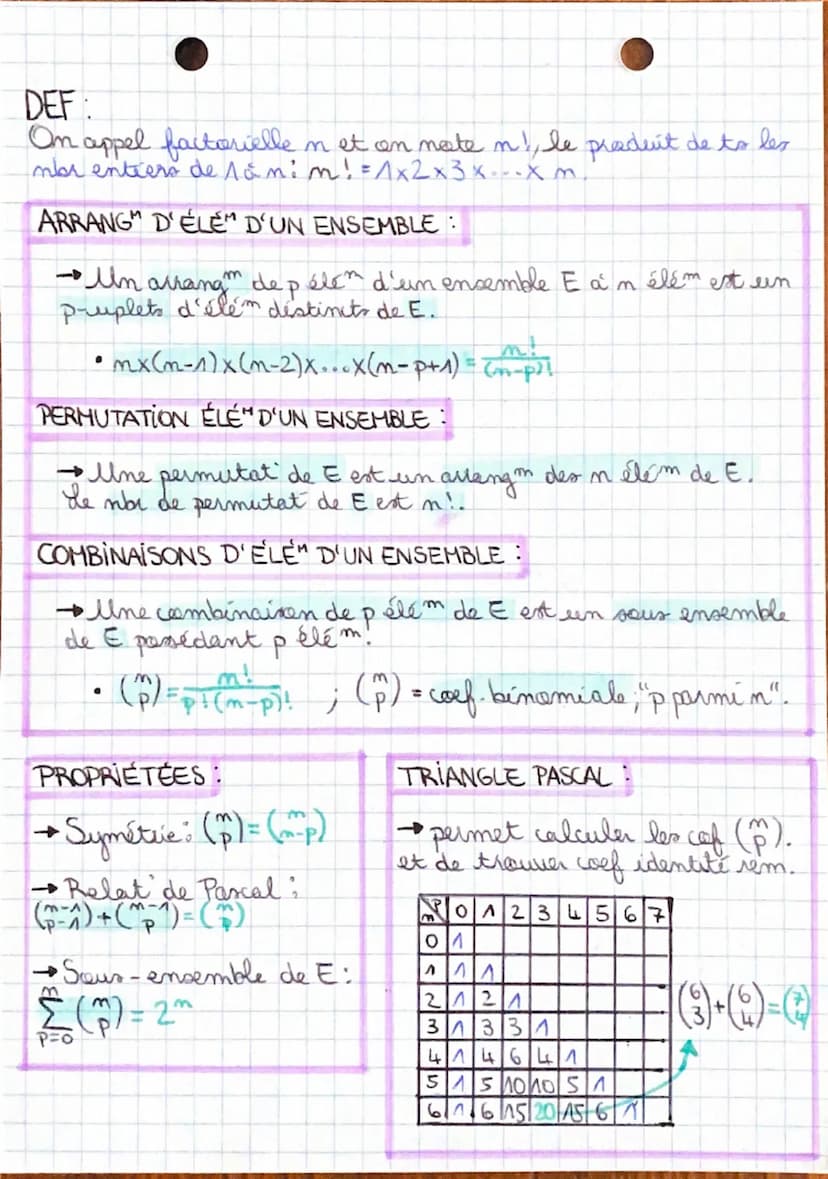 DEF :
On appel factorielle n et on note n!, le produit de ts les
nbr entiers de 1 à n : n! = 1x2x3x...x n.
ARRANGᵐ D'ÉLÉᵐ D'UN ENSEMBLE :
→ Un arrangᵐ de p éléᵐ d'un ensemble E à n éléᵐ est un
p-uplets d'éléᵐ distincts de E.
• nx(n-1)x(n-2)x...x(n-p+1) = n!/(n-p)!
PERMUTATION ÉLÉᵐ D'UN ENSEMBLE :
→ Une permutat° de E est un arrangᵐ des n éléᵐ de E.
Le nbr de permutat° de E est n!.
COMBINAISONS D'ÉLÉᵐ D'UN ENSEMBLE :
→ Une combinaison de p éléᵐ de E est un sous ensemble
de E possédant p éléᵐ.
• (n p) = n!/p!(n-p)! ; (n p) = coef. binomiale ; "p parmi n".
PROPRIÉTÉES :
→ Symétrie : (n p) = (n n-p)
→ Relat° de Pascal :
(n-1 p-1) + (n-1 p) = (n p)
→ Sous-ensemble de E :
n
Σ (n p) = 2ⁿ
p=0
TRIANGLE PASCAL :
→ permet calculer les coef (n p).
et de trouver coef identité rem.
n\p 0 1 2 3 4 5 6 7
0 1
1 1 1
2 1 2 1
3 1 3 3 1
4 1 4 6 4 1
5 1 5 10 10 5 1
6 1 6 15 20 15 6 1
(6 3) + (6 4) = (7 4)